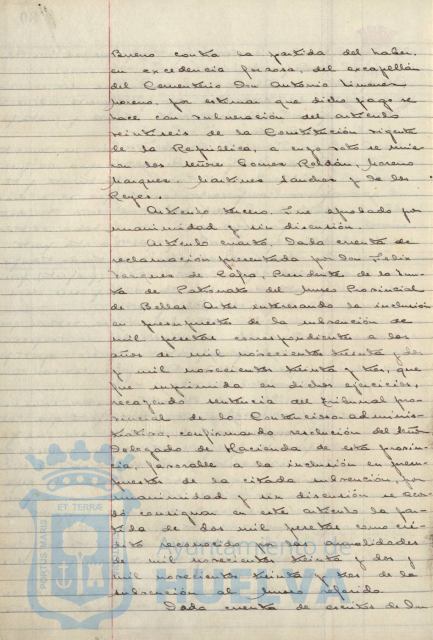 Bueno contra la partida del haber,
en excedencia forzosa, del excapellán
del Cementerio Don Antonio Jimenez
Moreno, por estimar que dicho pago se
hace con vulneración del artículo
veintiseis de la Constitución vigente
de la República, a cuyo voto se unie-
ron los señores Gomez Roldán, Moreno
Marquez, Martinez Sanchez y de los
Reyes.
Artículo tercero. Fue aprobado por
unanimidad y sin discusión.
Artículo cuarto. Dada cuenta de
reclamación presentada por Don Felix
Vazquez de Zafra, Presidente de la Jun-
ta de Patronato del Museo Provincial
de Bellas Artes interesando la inclusión
en presupuestos de la subvención de
mil pesetas correspondientes a los
años de mil novecientos treinta y dos
y mil novecientos treinta y tres, que
fue suprimida en dichos ejercicios,
recayendo sentencia del Tribunal pro-
vincial de lo Contencioso-adminis-
trativo, confirmando resolución del Señor
Delegado de Hacienda de esta provin-
cia, favorable a la inclusión en presu-
puestos de la citada subvención, por
unanimidad y sin discusión se acor-
dó consignar en este artículo la par-
tida de dos mil pesetas como cré-
dito reconocido por las anualidades
de mil novecientos treinta y dos y
mil novecientos treinta y tres de la
subvención al museo referido.
Dada cuenta de escritos de Don
PORTUS MARIS ET TERRAE
Ayuntamiento de
HUELVA